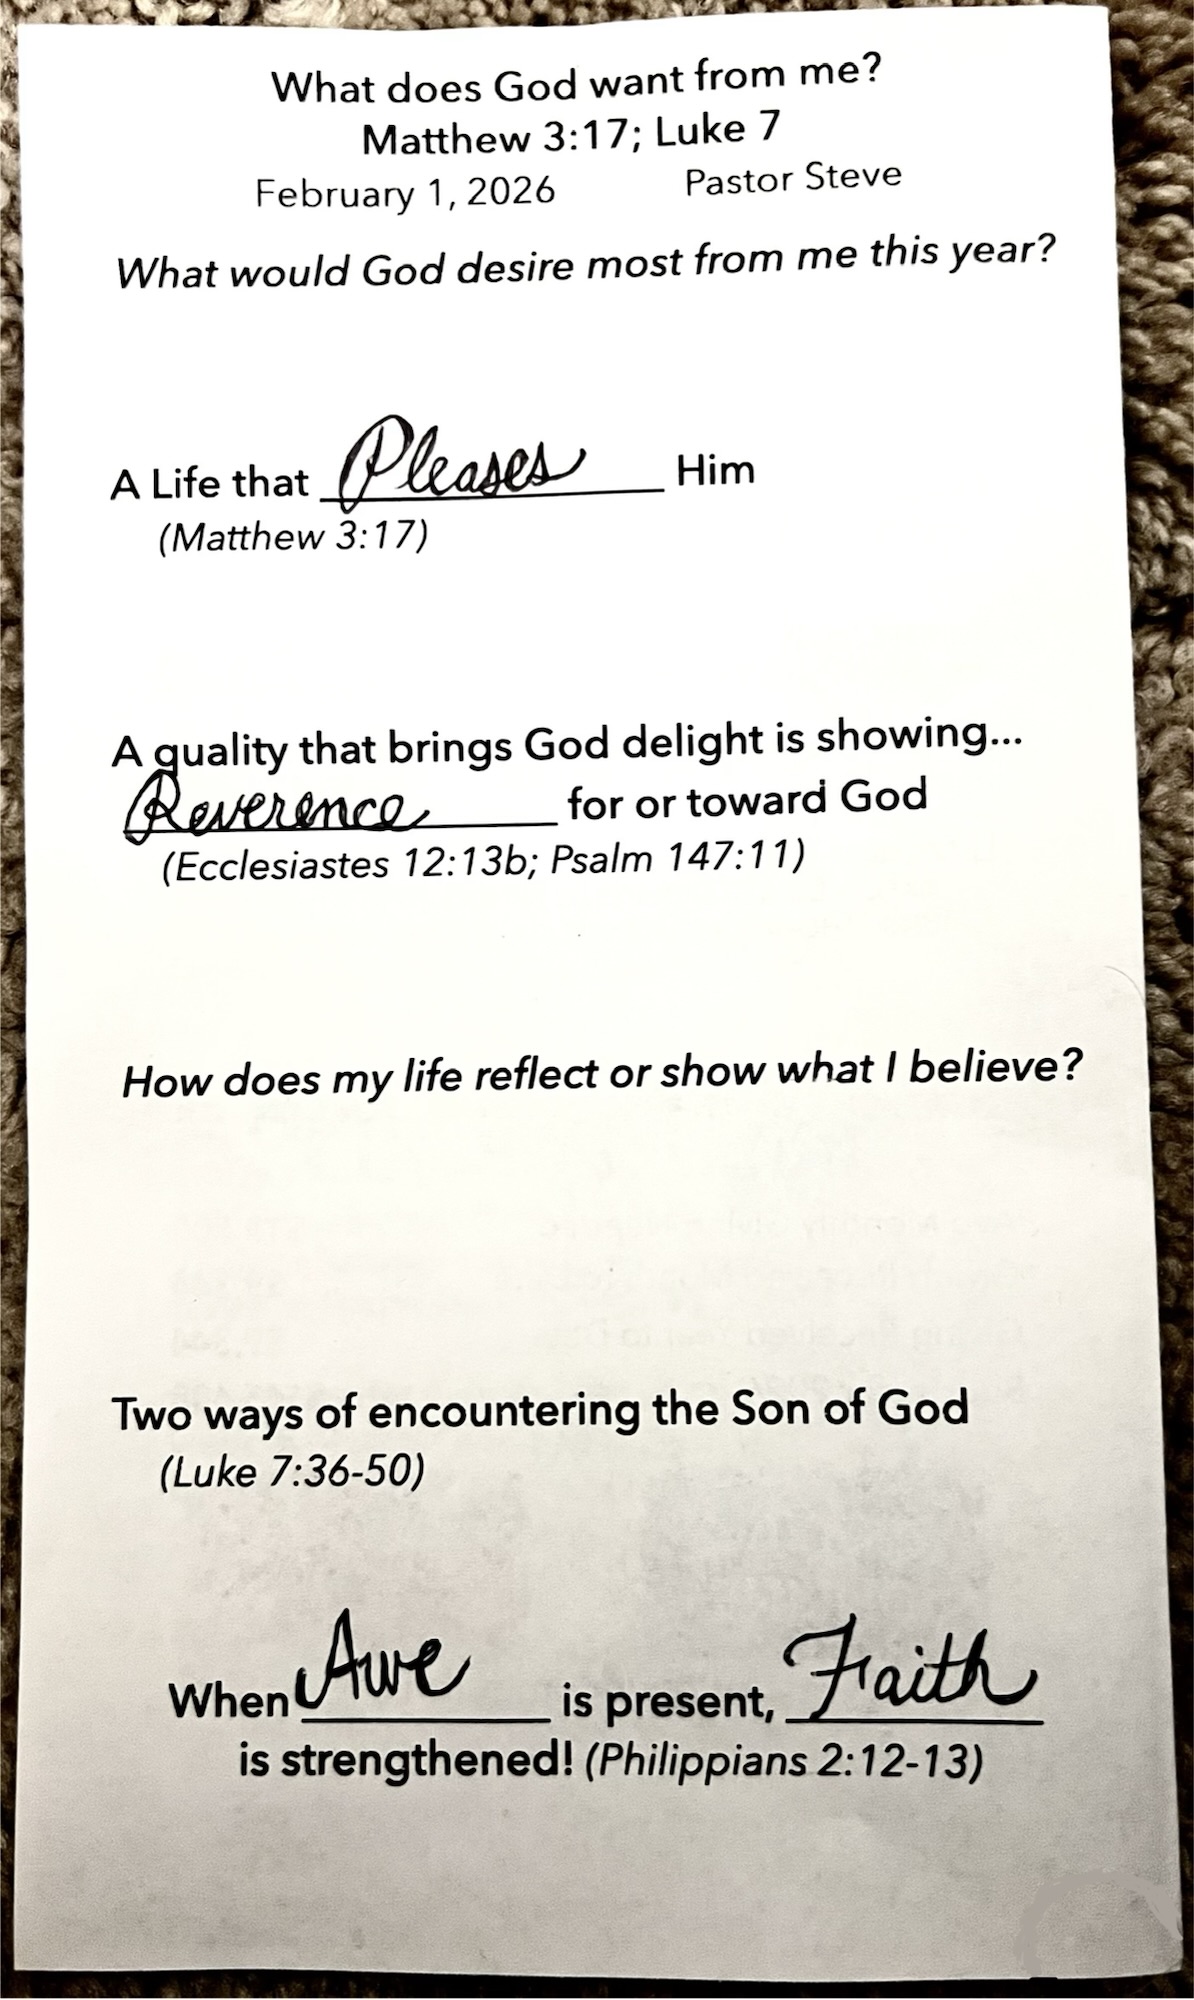 What does God want from me?
Matthew 3:17; Luke 7
February 1, 2026 Pastor Steve
What would God desire most from me this year?
A Life that Pleases Him
(Matthew 3:17)
A quality that brings God delight is showing...
Reverence for or toward God
(Ecclesiastes 12:13b; Psalm 147:11)
How does my life reflect or show what I believe?
Two ways of encountering the Son of God
(Luke 7:36-50)
When Awe is present, Faith
is strengthened! (Philippians 2:12-13)